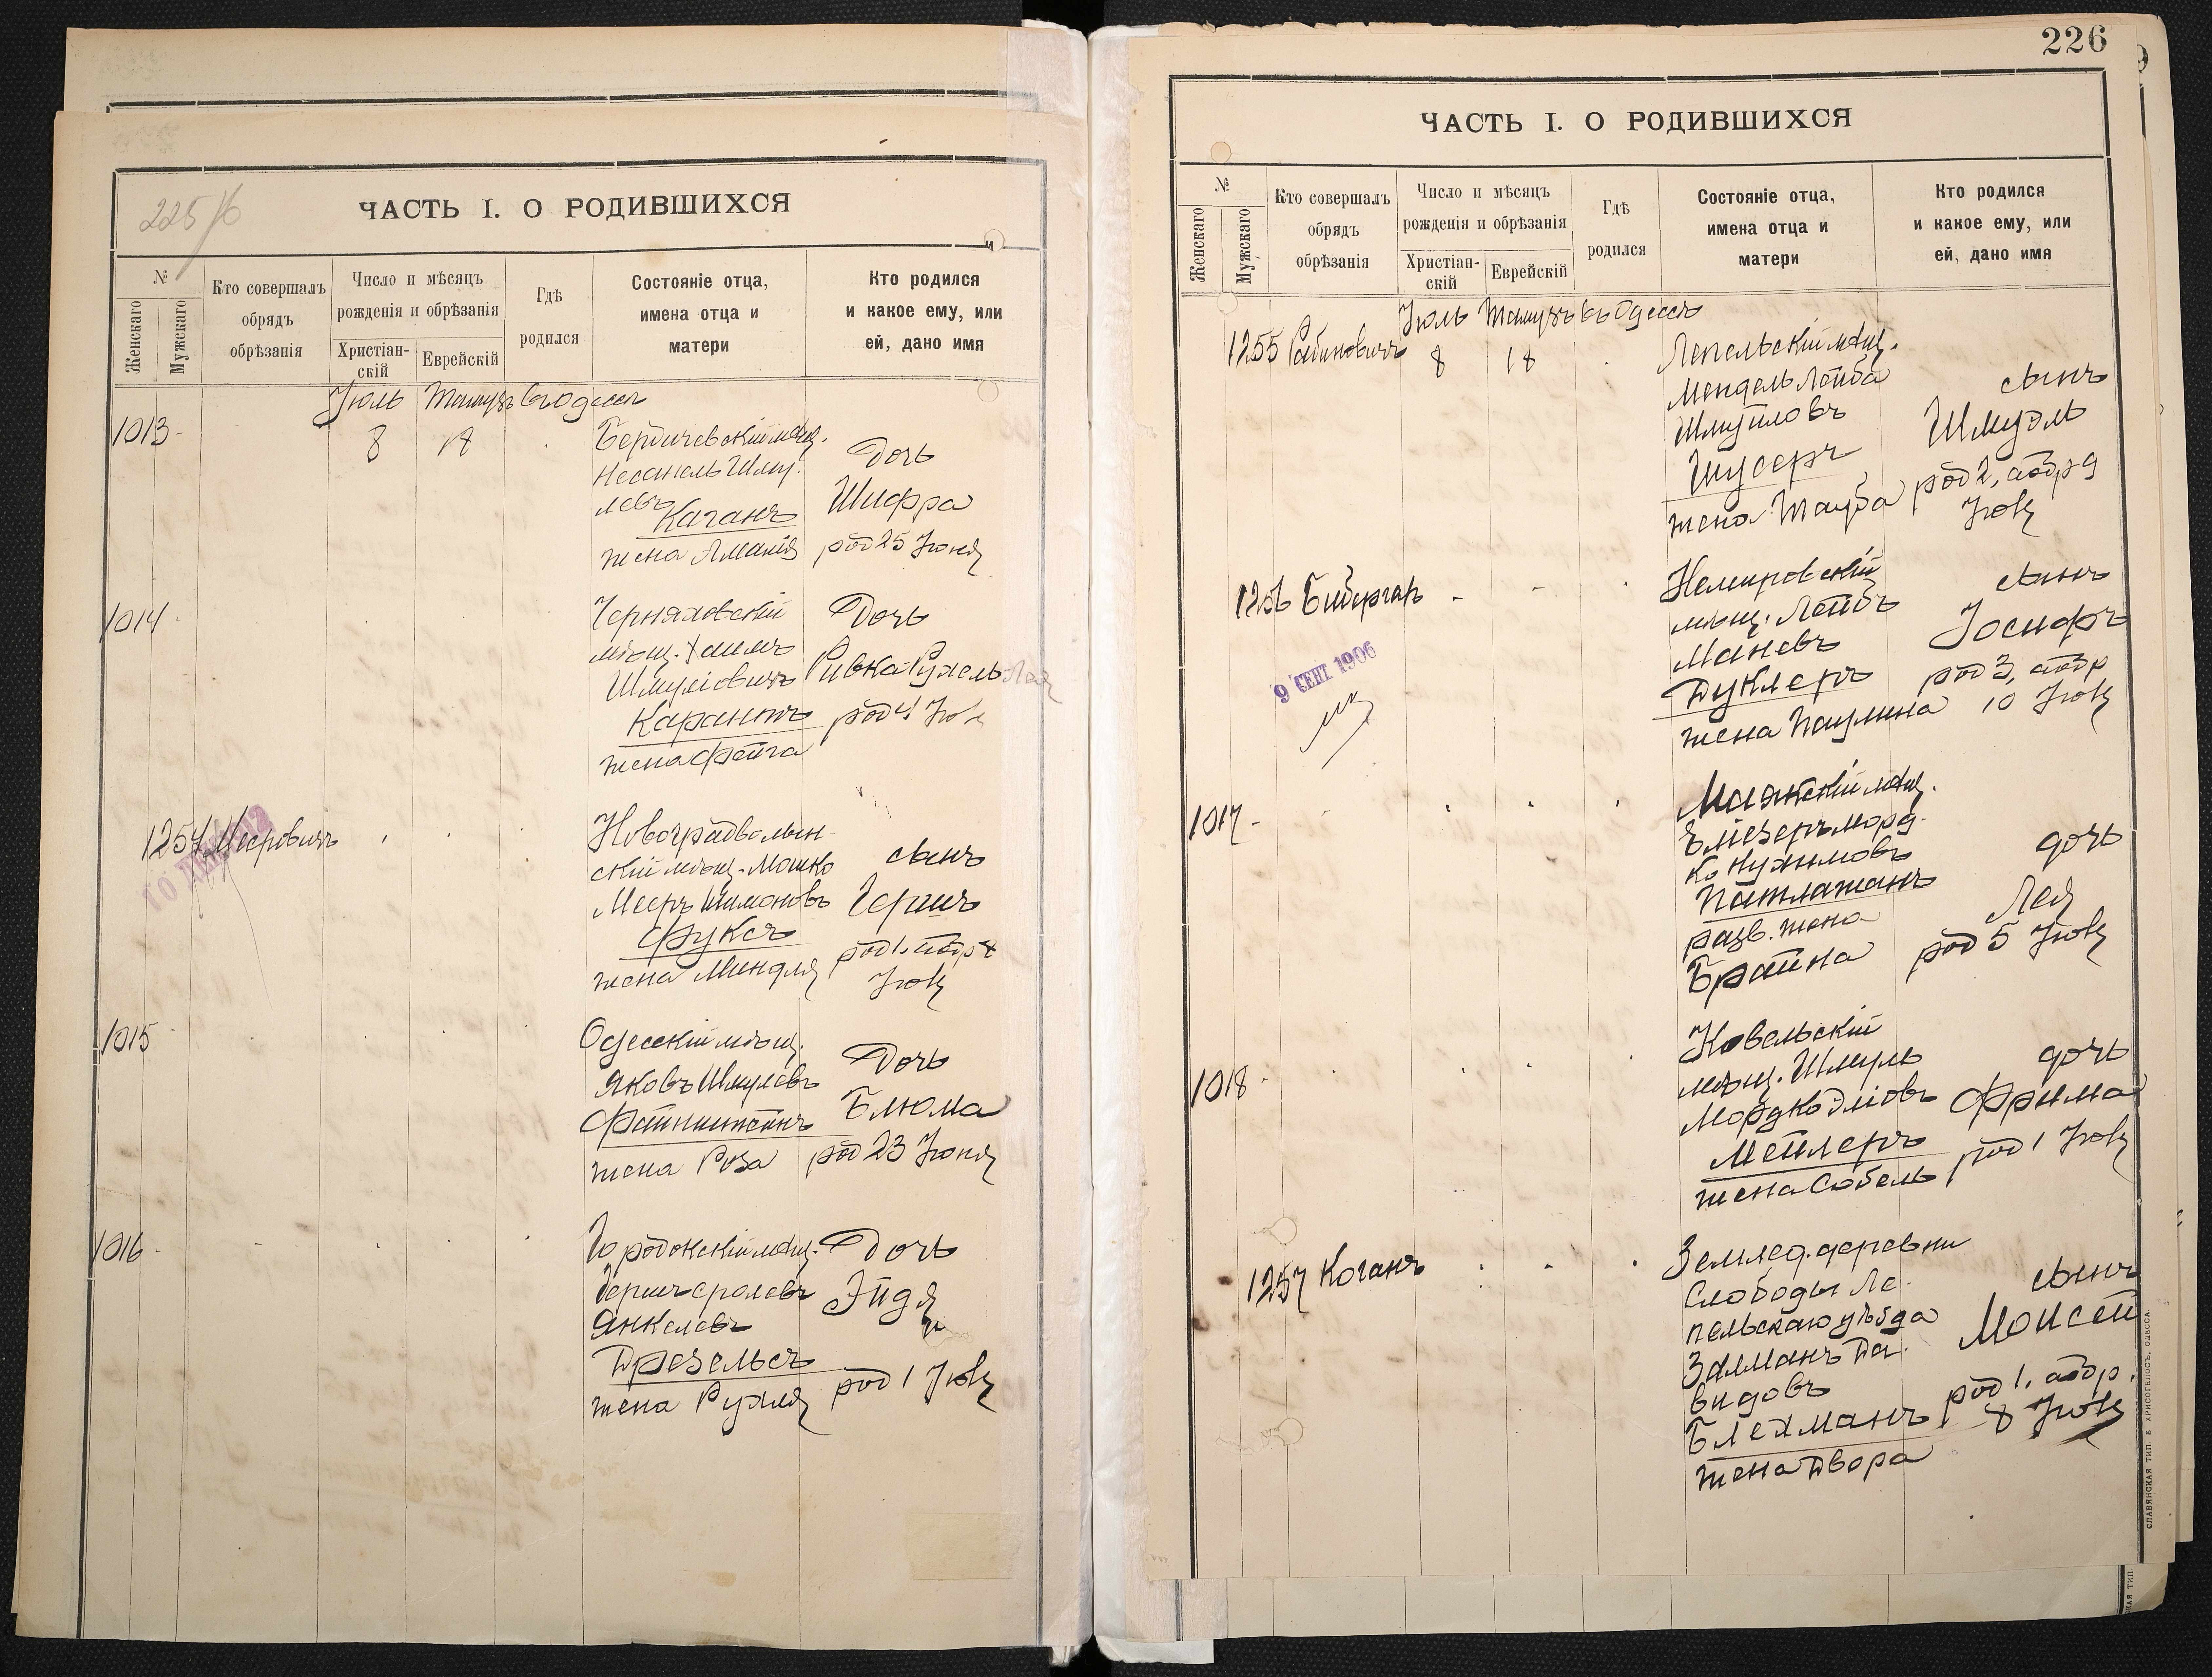 225/б
ЧАСТЬ I. О РОДИВШИХСЯ
№
Женскаго
Мужскаго
Кто совершалъ
обрядъ
обрѣзанія
Число и мѣсяцъ
рожденія и обрѣзанія
Христіан-
скій
Еврейскій
Гдѣ
родился
Состояніе отца,
имена отца и
матери
Кто родился
и какое ему, или
ей, дано имя
Іюль Тамузъ въ Одессѣ
1013
8
18
Бердичевскій мѣщ.
Шму-
левъ
Каганъ
жена
Дочь
Шифра
род 25 Іюня
1014
Черняховскій
мѣщ. Хаимъ
Шмулiовичъ
Карантъ
жена Фейга
Дочь
Ривка-Рухель-Лея
род 4 Іюля
1254 Мееровичъ
Новоградволын-
скій мѣщ. Мошко
Мееръ Шимоновъ
Фуксъ
жена Миндля
сынъ
Гершъ
род 1. обр 8
Іюля
1015
Одесскій мѣщ.
Яковъ Шмулевъ
Файнштейнъ
жена Роза
Дочь
Блюма
род 23 Іюня
1016
Городокскій мѣщ.
Гершъ Сролевъ
Янкелевъ
Дрезельсъ
жена Рухля
Дочь
Эйдя
род 1 Іюля
226
ЧАСТЬ I. О РОДИВШИХСЯ
№
Женскаго
Мужскаго
Кто совершалъ
обрядъ
обрѣзанія
Число и мѣсяцъ
рожденія и обрѣзанія
Христіан-
скій
Еврейскій
Гдѣ
родился
Состояніе отца,
имена отца и
матери
Кто родился
и какое ему, или
ей, дано имя
Іюль Тамузъ въ Одессѣ
1255 Рабиновичъ
8
18
Лепельскій мѣщ.
Мендель Лейба
Шмуйловъ
Шусеръ
жена Тауба
сынъ
Шмуэль
род 2, обр 9
Іюля
1256 Бидерган
9 СЕНТ 1906
Немировскій
мѣщ. Лейбъ
Маневъ
Дуклеръ
жена Паулина
сынъ
Іосифъ
род 3, обр
10 Іюля
1017
Маякскій мѣщ.
Эліезеръ Морд-
ко Нухимовъ
Патлажанъ
разв. жена
Брайна
дочь
Лея
род 5 Іюля
1018
Ковельскій
мѣщ. Шмуль
Мордкодлiовъ
Мейлеръ
жена Собель
дочь
Фрима
род 1 Іюля
1257 Коганъ
Землед. деревни
Слободы Ле-
пельскаго уѣзда
Залманъ Да-
видовъ
Блехманъ
жена Двора
сынъ
Моисей
род 1, обр.
8 Іюля
СЛАВЯНСКАЯ ТИП. Е. ХРИСОГЕЛОСЪ, ОДЕССА